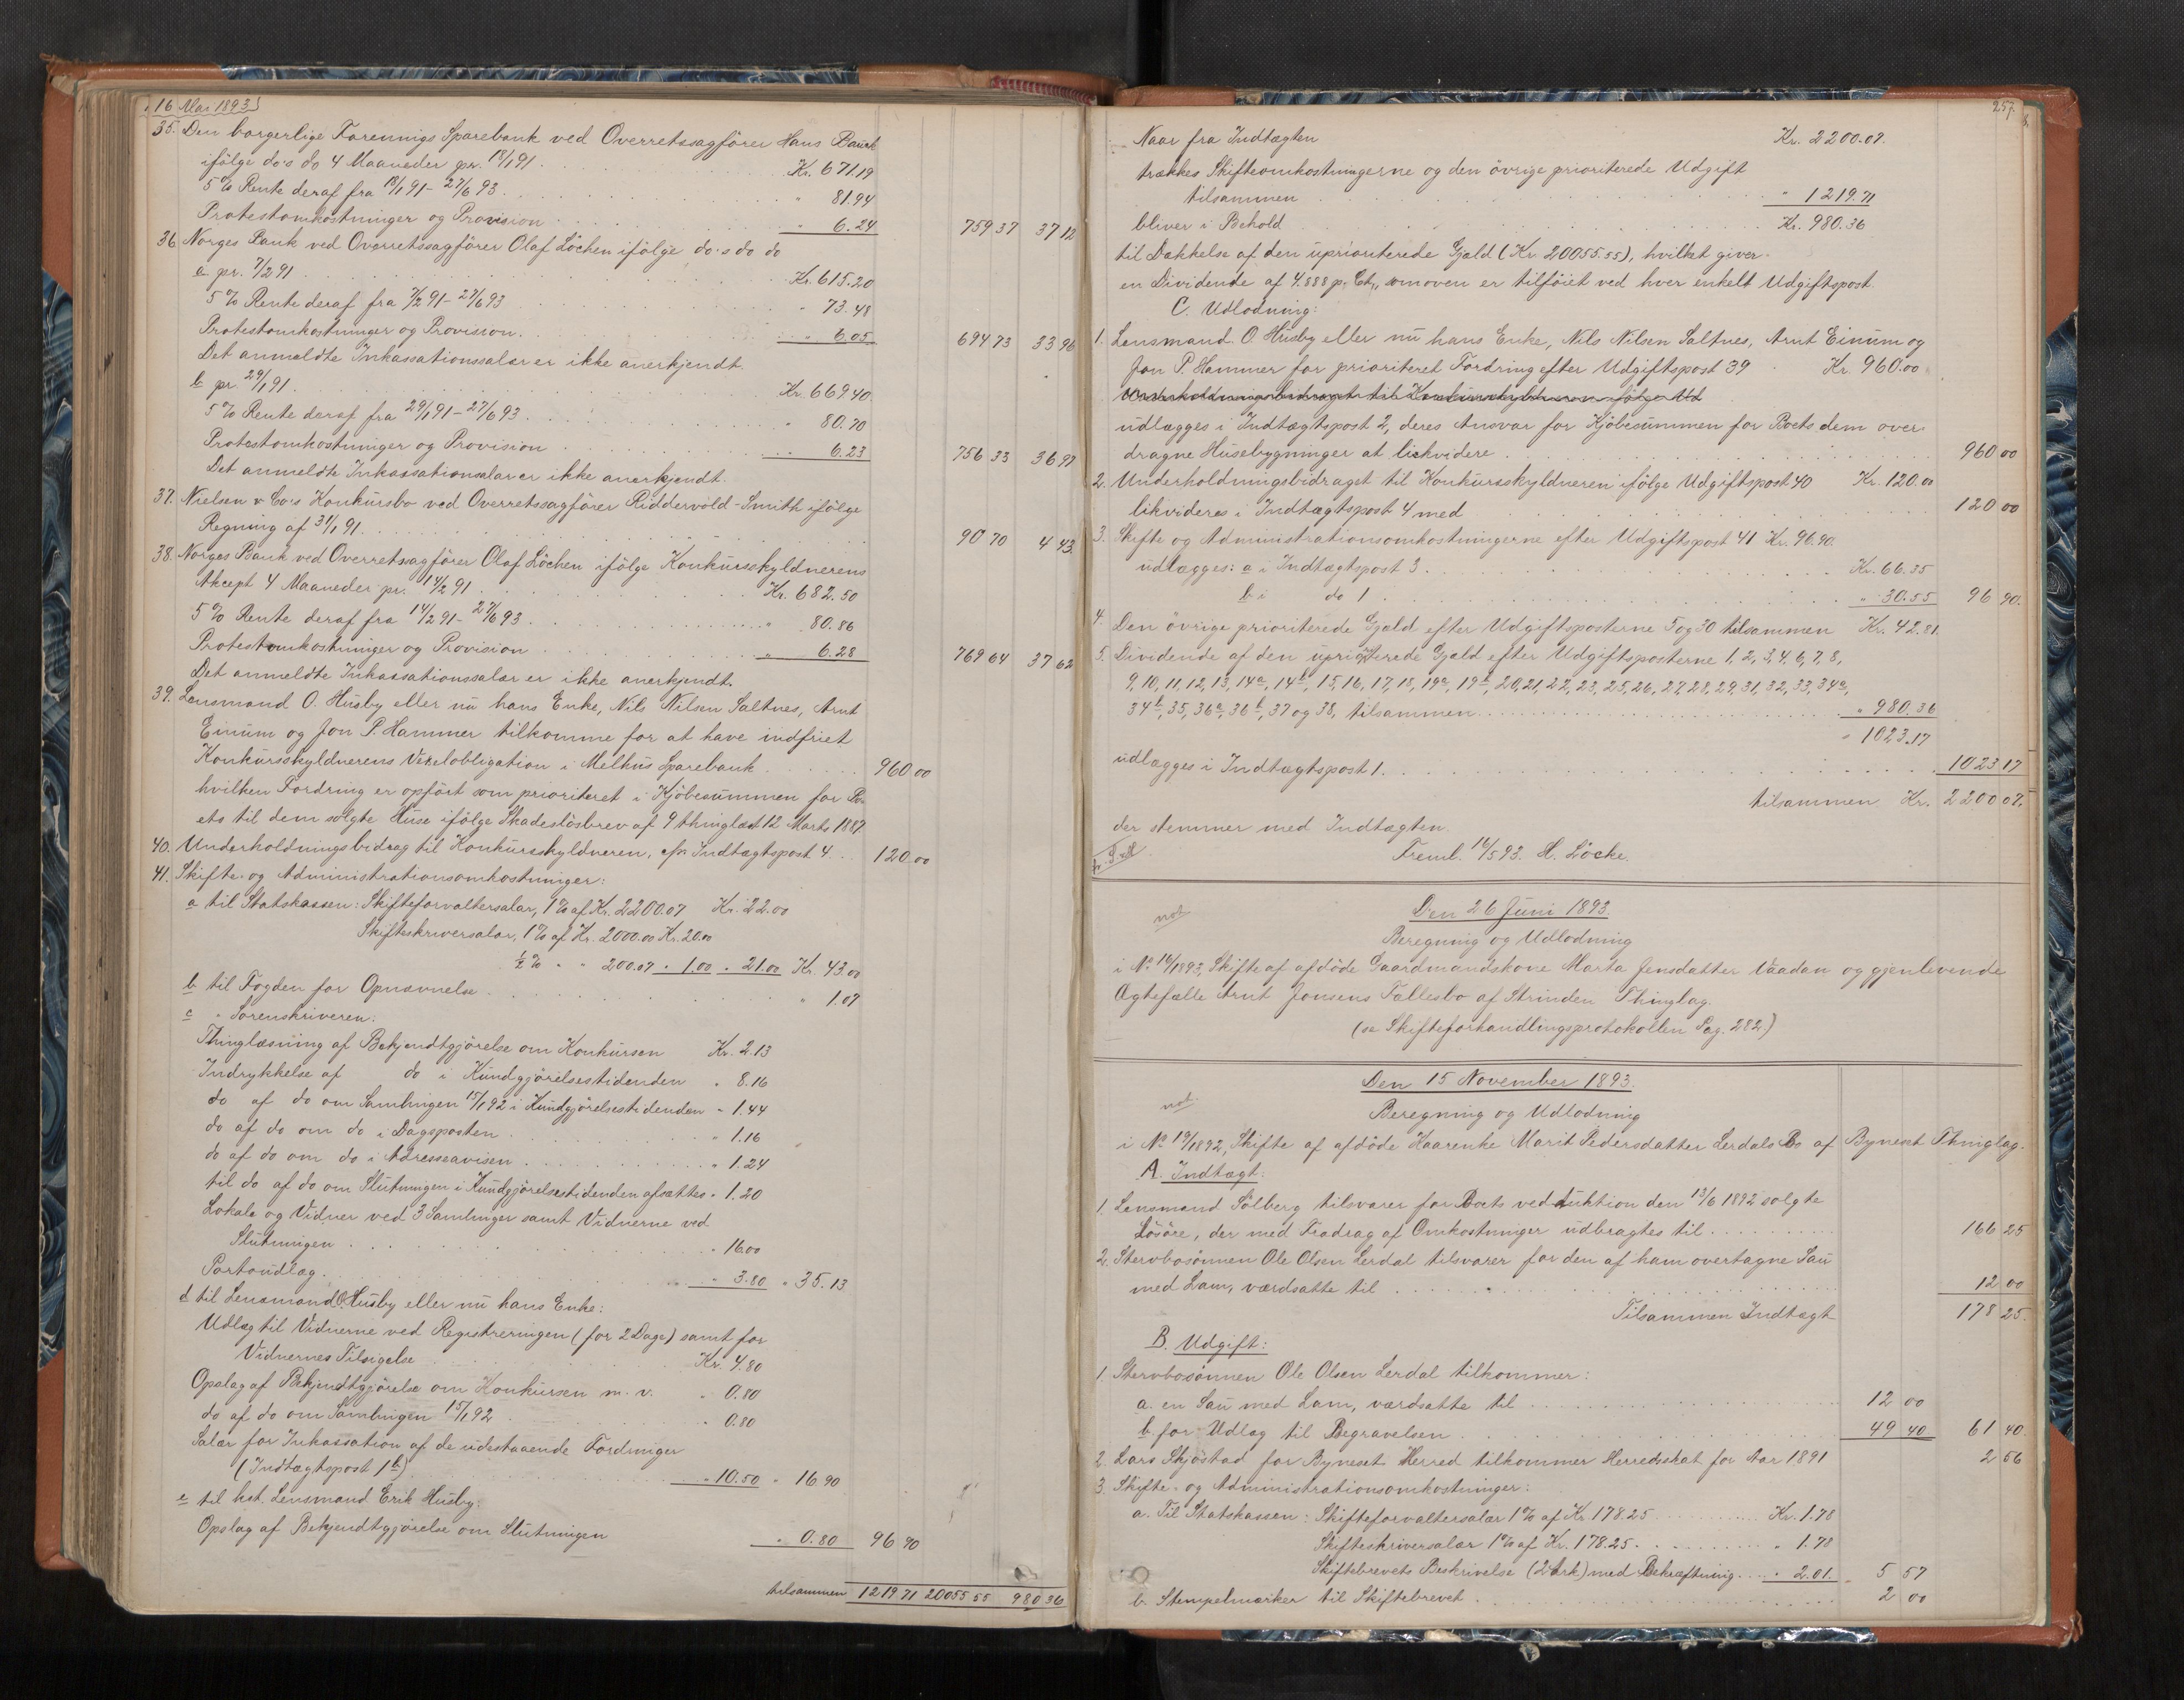 16 Mai 1893
35. Den borgerlige Forenings Sparebank ved Overretssagfører Hans Bauck
ifølge do's do 4 Maaneder pr. 18/1 91 . Kr. 671.19
5 % Rente deraf fra 18/1 91 - 27/6 93 . " 81.94
Protestomkostninger og Provision . " 6.24 759 37 37 12
36. Norges Bank ved Overretssagfører Olaf Löchen ifølge do's do do
a pr. 7/2 91 . Kr. 615.20
5 % Rente deraf fra 7/2 91 - 27/6 93 " 73.48
Protestomkostninger og Provision. " 6.05 694 73 33 96
Det anmeldte Inkassationssalær er ikke anerkjendt.
b pr. 29/1 91. Kr. 669.40
5 % Rente deraf fra 29/1 91 - 27/6 93 . " 80.70
Protestomkostninger og Provision . " 6.23 756 33 36 97
Det anmeldte Inkassationssalær er ikke anerkjendt.
37. Nielsen & Co's Konkursbo ved Overretssagfører Riddervold-Smith ifølge
Regning af 31/1 91 . 90 70 4 43
38. Norges Bank ved Overretssagfører Olaf Löchen ifølge Konkursskyldnerens
Akcept 4 Maaneder pr. 14/2 91 . Kr. 682.50
5 % Rente deraf fra 14/2 91 - 27/6 93 . " 80.86
Protestomkostninger og Provision " 6.28 769 64 37 62
Det anmeldte Inkassationssalær er ikke anerkjendt.
39. Lensmand O. Husby eller nu hans Enke, Nils Nilsen Saltnes, Arnt
Einum og Jon P. Hammer tilkomme for at have indfriet
Konkursskyldnerens Vexelobligation i Melhus Sparebank . 960 00
hvilken Fordring er opført som prioriteret i Kjöbesummen for Bo-
ets til dem solgte Huse ifølge Skadeslösbrev af 9 thinglæst 12 Marts 1887
40. Underholdningsbidrag til Konkursskyldneren, cfr Indtægtspost 4 . 120.00
41. Skifte- og Administrationsomkostninger:
a til Statskassen: Skifteforvaltersalær, 1 % af Kr. 2200.07 Kr. 22.00
Skifteskriversalær, 1 % af Kr. 2000.00 Kr. 20.00
1/2 % " " 200.07 " 1.00 " 21.00 Kr. 43.00
b til Fogden for Opnævnelse . " 1.07
c " Sorenskriveren:
Thinglæsning af Bekjendtgjörelse om Konkursen Kr. 2.13
Indrykkelse af do i Kundgjörelsestidenden " 8.16
do af do om Samlingen 15/1 92 i Kundgjörelsestidenden " 1.44
do af do om do i Dagsposten . " 1.16
do af do om do i Adresseavisen . " 1.24
til do af do om Slutningen i Kundgjörelsestidenden afsættes " 1.20
Lokale og Vidner ved 3 Samlinger samt Vidnerne ved
Slutningen . " 16.00
Portoudlæg. " 3.80 " 35.13
d til Lensmand O. Husby eller nu hans Enke:
Udlæg til Vidnerne ved Registreringen (for 2 Dage) samt for
Vidnernes Tilsigelse Kr. 4.80
Opslag af Bekjendtgjörelse om Konkursen m. v. " 0.80
do af do om Samlingen 15/1 92 . " 0.80
Salær for Inkassation af de udestaaende Fordringer
(Indtægtspost 1 b) . " 10.50 " 16.90
e til kst. Lensmand Erik Husby:
Opslag af Bekjendtgjörelse om Slutningen " 0.80 96 90
tilsammen 1219 71 20055 55 980 36
257.
Naar fra Indtægten Kr. 2200.07.
trækkes Skifteomkostningerne og den övrige prioriterede Udgift
tilsammen . " 1219.71
bliver i Behold . Kr. 980.36
til Dækkelse af den uprioriterede Gjæld (Kr. 20055.55), hvilket giver
en Dividende af 4.888 p. Ct., som oven er tilföiet ved hver enkelt Udgiftspost.
C. Udlodning:
1. Lensmand O. Husby eller nu hans Enke, Nils Nilsen Saltnes, Arnt Einum og
Jon P. Hammer for prioriteret Fordring efter Udgiftspost 39 Kr. 960.00
Underholdningsbidraget til Konkursskyldneren ifølge Ud
udlægges i Indtægtspost 2, deres Ansvar for Kjöbesummen for Boets dem over-
dragne Husebygninger at likvidere . 960 00
2. Underholdningsbidraget til Konkursskyldneren ifølge Udgiftspost 40 Kr. 120.00
likvideres i Indtægtspost 4 med 120 00
3. Skifte og Administrationsomkostningerne efter Udgiftspost 41 Kr. 96.90.
udlægges: a i Indtægtspost 3 . Kr. 66.35
b i do 1 . " 30.55 96 90.
4. Den övrige prioriterede Gjæld efter Udgiftsposterne 5 og 30 tilsammen Kr. 42.81
5. Dividende af den uprioriterede Gjæld efter Udgiftsposterne 1, 2, 3, 4, 6, 7, 8,
9, 10, 11, 12, 13, 14a, 14b, 15, 16, 17, 18, 19a, 19b, 20, 21, 22, 23, 25, 26, 27, 28, 29, 31, 32, 33, 34a,
34b, 35, 36a, 36b, 37 og 38, tilsammen . " 980.36
" 1023.17
udlægges i Indtægtspost 1. 1023 17
tilsammen Kr. 2200 07.
der stemmer med Indtægten.
Freml. 16/5 93. H. Löcke.
not.
Den 26 Juni 1893.
Beregning og Udlodning
i No 16/1893, Skifte af afdöde Gaardmandskone Marta Jensdatter Vaadan og gjenlevende
Ægtefælle Arnt Jonsens Fællesbo af Strinden Thinglag.
(se Skifteforhandlingsprotokollen Pag. 282.)
not.
Den 15 November 1893.
Beregning og Udlodning
i No 19/1892, Skifte af afdöde Kaarenke Marit Pedersdatter Lerdals Bo af Bynesset Thinglag.
A. Indtægt:
1. Lensmand Solberg tilsvarer for Boets ved Auktion den 13/6 1892 solgte
Lösöre, der med Fradrag af Omkostninger udbragtes til . 166 25
2. Stervbosönnen Ole Olsen Lerdal tilsvarer for den af ham overtagne Sau
med Lam, værdsatte til . 12 00
Tilsammen Indtægt 178 25.
B. Udgift:
1. Stervbosönnen Ole Olsen Lerdal tilkommer:
a. en Sau med Lam, værdsatte til . 12 00
b. for Udlæg til Begravelsen . 49 40 61 40.
2. Lars Skjöstad for Bynesset Herred tilkommer Herredsskat for Aar 1891 2 56
3. Skifte- og Administrationsomkostninger:
a. Til Statskassen: Skifteforvaltersalær 1 % af Kr 178.25 . Kr. 1.78
Skifteskriversalær 1 % af Kr. 178.25 . " 1.78
Skiftebrevets Beskrivelse (2 Ark) med Bekræftning . " 2.01. 5 57
b. Stempelmærker til Skiftebrevet . 2 00